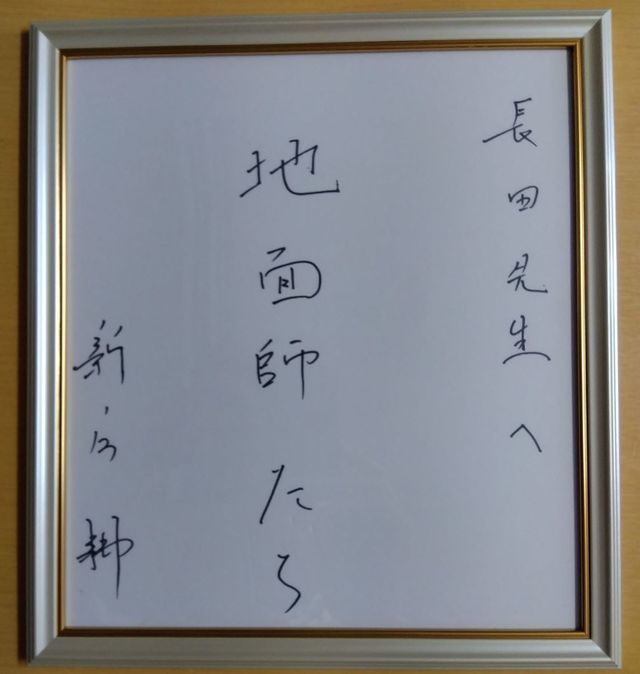 長田先生へ
地面師たち
新庄耕